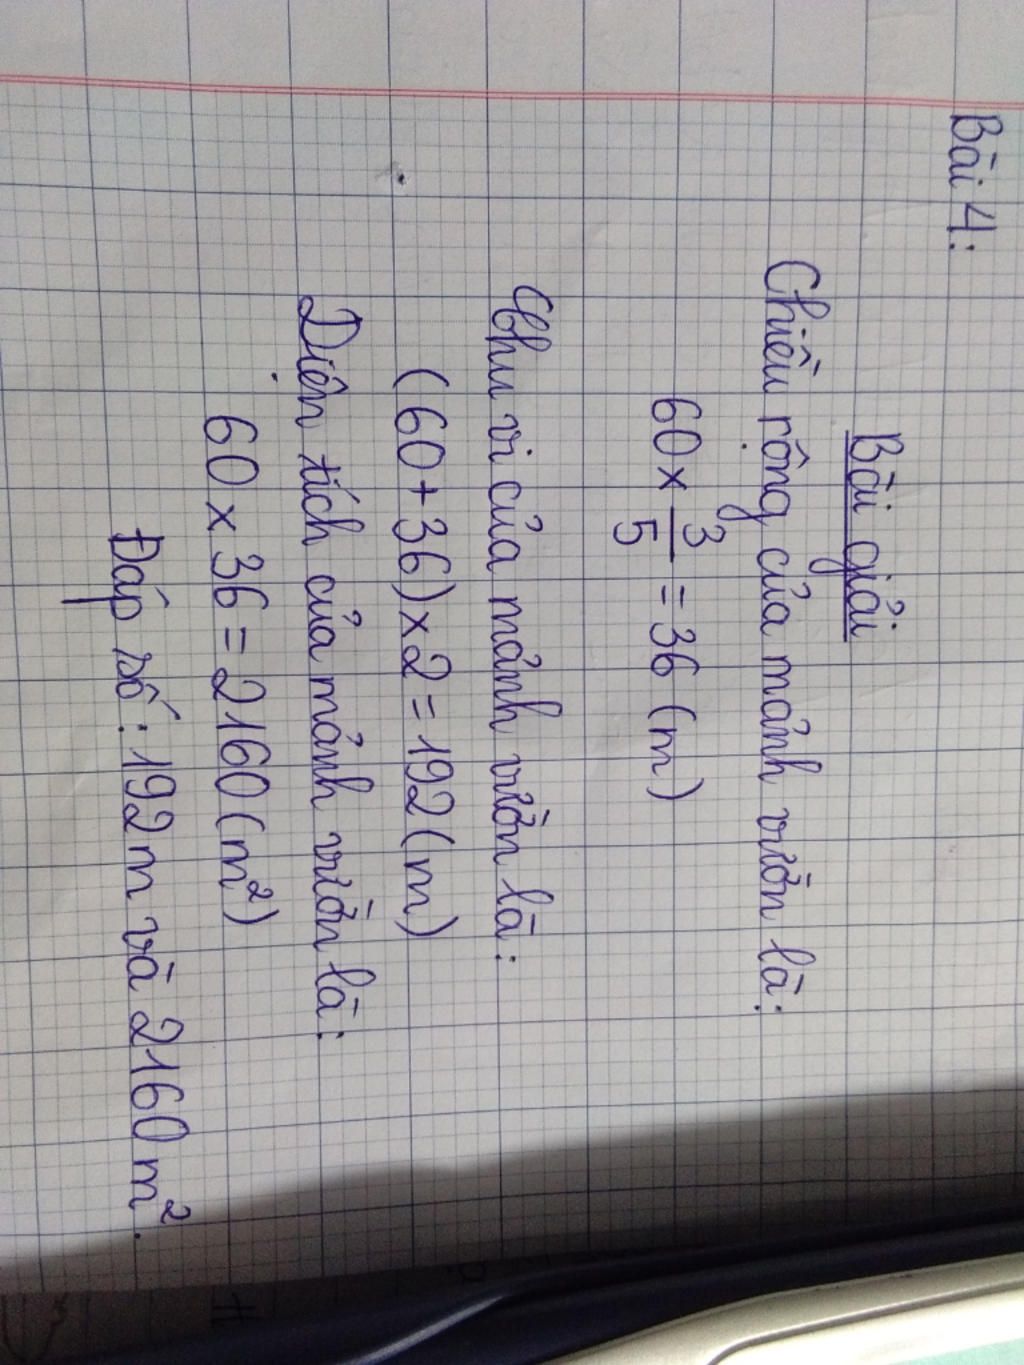 Bài 4:
Bài giải
Chiều rộng của mảnh vườn là:
60 × 3/5 = 36 (m)
Chu vi của mảnh vườn là:
(60 + 36) × 2 = 192 (m)
Diện tích của mảnh vườn là:
60 × 36 = 2160 (m²)
Đáp số: 192m và 2160 m².